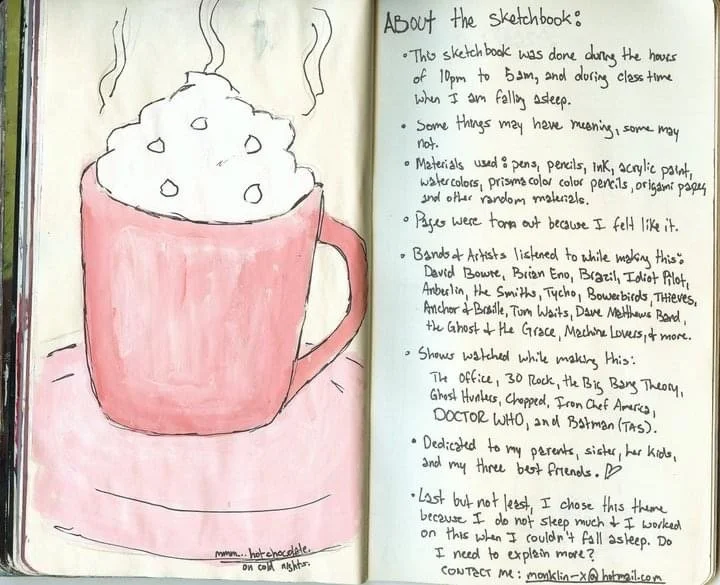 mmm... hot chocolate.
on cold nights.
About the sketchbook:
• This sketchbook was done during the hours
of 10pm to 5am, and during class time
when I am falling asleep.
• Some things may have meaning, some may
not.
• Materials used: pens, pencils, ink, acrylic paint,
watercolors, prismacolor color pencils, origami paper,
and other random materials.
• Pages were torn out because I felt like it.
• Bands & Artists listened to while making this:
David Bowie, Brian Eno, Brazil, Idiot Pilot,
Anberlin, the Smiths, Tycho, Bowerbirds, THIEVES,
Anchor & Braille, Tom Waits, Dave Matthews Band,
the Ghost & the Grace, Machine Lovers, & more.
• Shows watched while making this:
The Office, 30 Rock, the Big Bang Theory,
Ghost Hunters, Chopped, Iron Chef America,
DOCTOR WHO, and Batman (TAS).
• Dedicated to my parents, sister, her kids,
and my three best friends.
• Last but not least, I chose this theme
because I do not sleep much & I worked
on this when I couldn't fall asleep. Do
I need to explain more?
CONTACT ME: monklin-x@hotmail.com